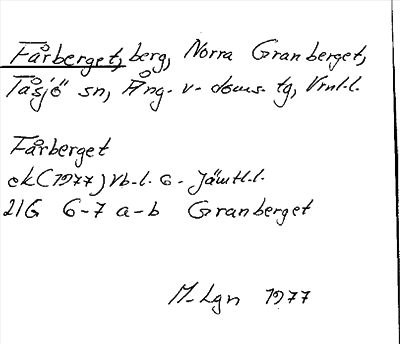 Fårberget, berg, Norra Granberget,
Tåsjö sn, Ång. v. doms. tg, Vrnl.l.
Fårberget
ek (1977) Vb.l. o. Jämtl.l.
21G 6-7 a-b Granberget
M-Lgn 1977